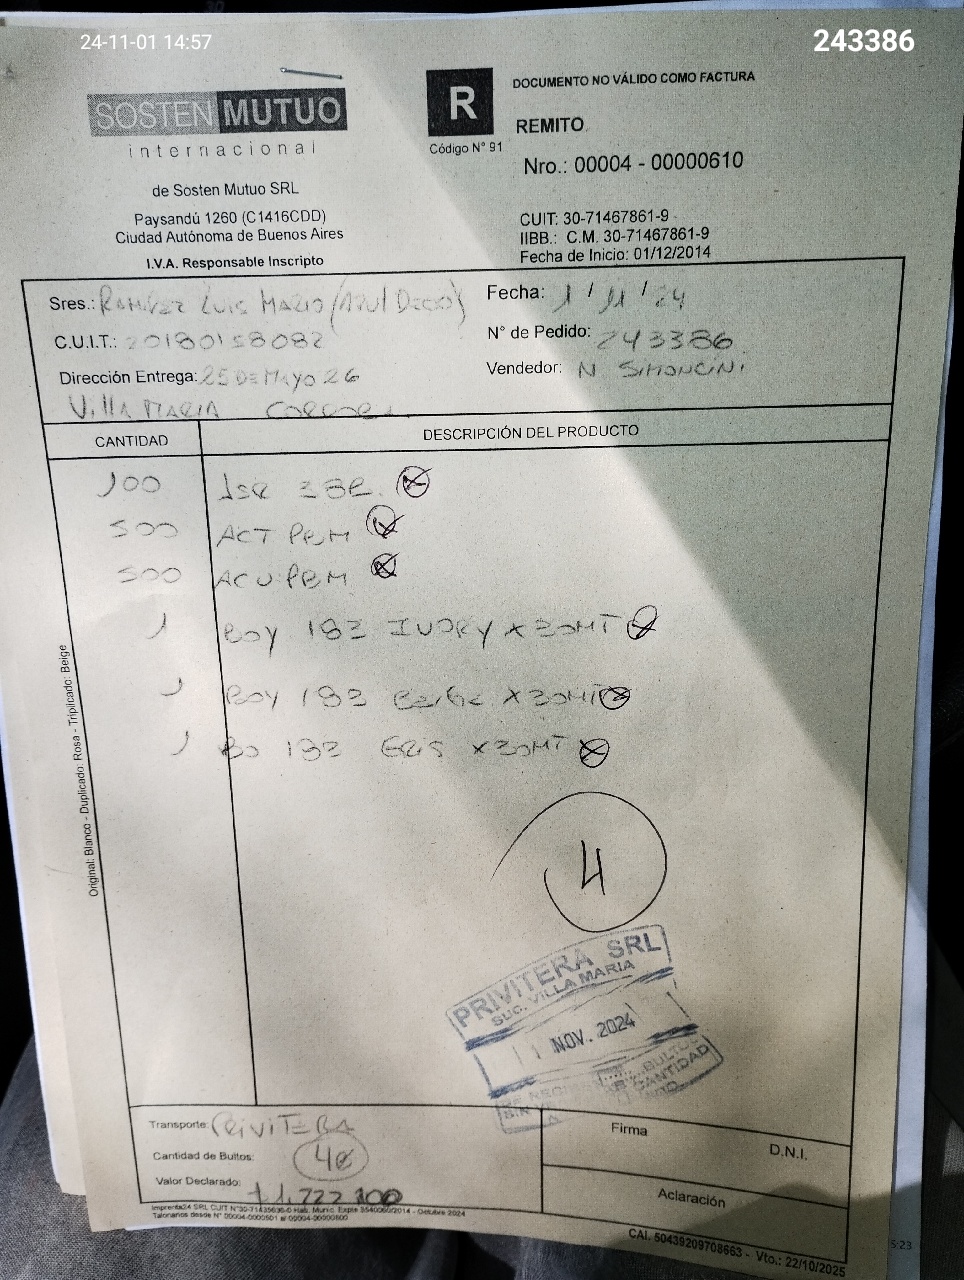 24-11-01 14:57
243386
SOSTEN MUTUO
internacional
de Sosten Mutuo SRL
Paysandú 1260 (C1416CDD)
Ciudad Autónoma de Buenos Aires
I.V.A. Responsable Inscripto
R
Código N° 91
DOCUMENTO NO VÁLIDO COMO FACTURA
REMITO
Nro.: 00004 - 00000610
CUIT: 30-71467861-9
IIBB.: C.M. 30-71467861-9
Fecha de Inicio: 01/12/2014
Sres.: Ramirez Luis Mario (Azul Deco)
Fecha: 1 / 11 / 24
C.U.I.T.: 20180158082
N° de Pedido: 243386
Dirección Entrega: 25 DE MAYO 26
Vendedor: N SIMONCINI
VILLA MARIA
CANTIDAD
DESCRIPCIÓN DEL PRODUCTO
100
500 ACT PBM
500 ACU PBM
1 BOY 183 IVORY X 30MT
1 BOY 183 Beige X 30MT
1 BO 183 GRIS X 30MT
4
PRIVITERA SRL
SUC. VILLA MARIA
NOV. 2024
BULTOS
CANTIDAD
Original: Blanco - Duplicado: Rosa - Triplicado: Beige
Transporte: PRIVITERA
Cantidad de Bultos: 4
Valor Declarado: 1.722.100
Firma
D.N.I.
Aclaración
Imprenta24 SRL CUIT N°30-71435636-0 Hab. Munic. Expte 3540060/2014 - Octubre 2024
Talonarios desde N° 00004-00000501 al 00004-00000800
CAI. 50439209708663 - Vto.: 22/10/2025